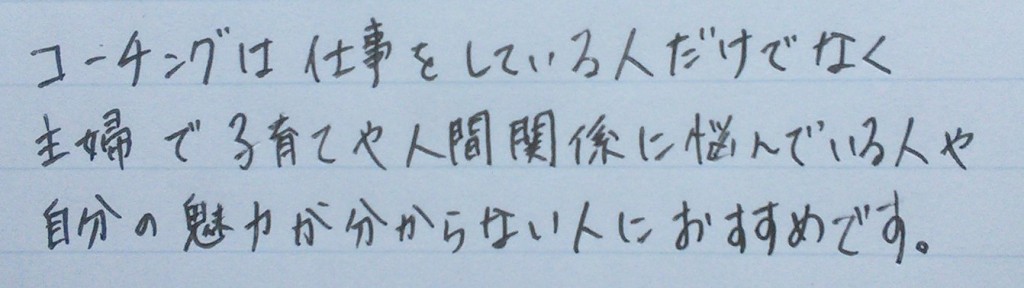 コーチングは仕事をしている人だけでなく
主婦で子育てや人間関係に悩んでいる人や
自分の魅力が分からない人におすすめです。